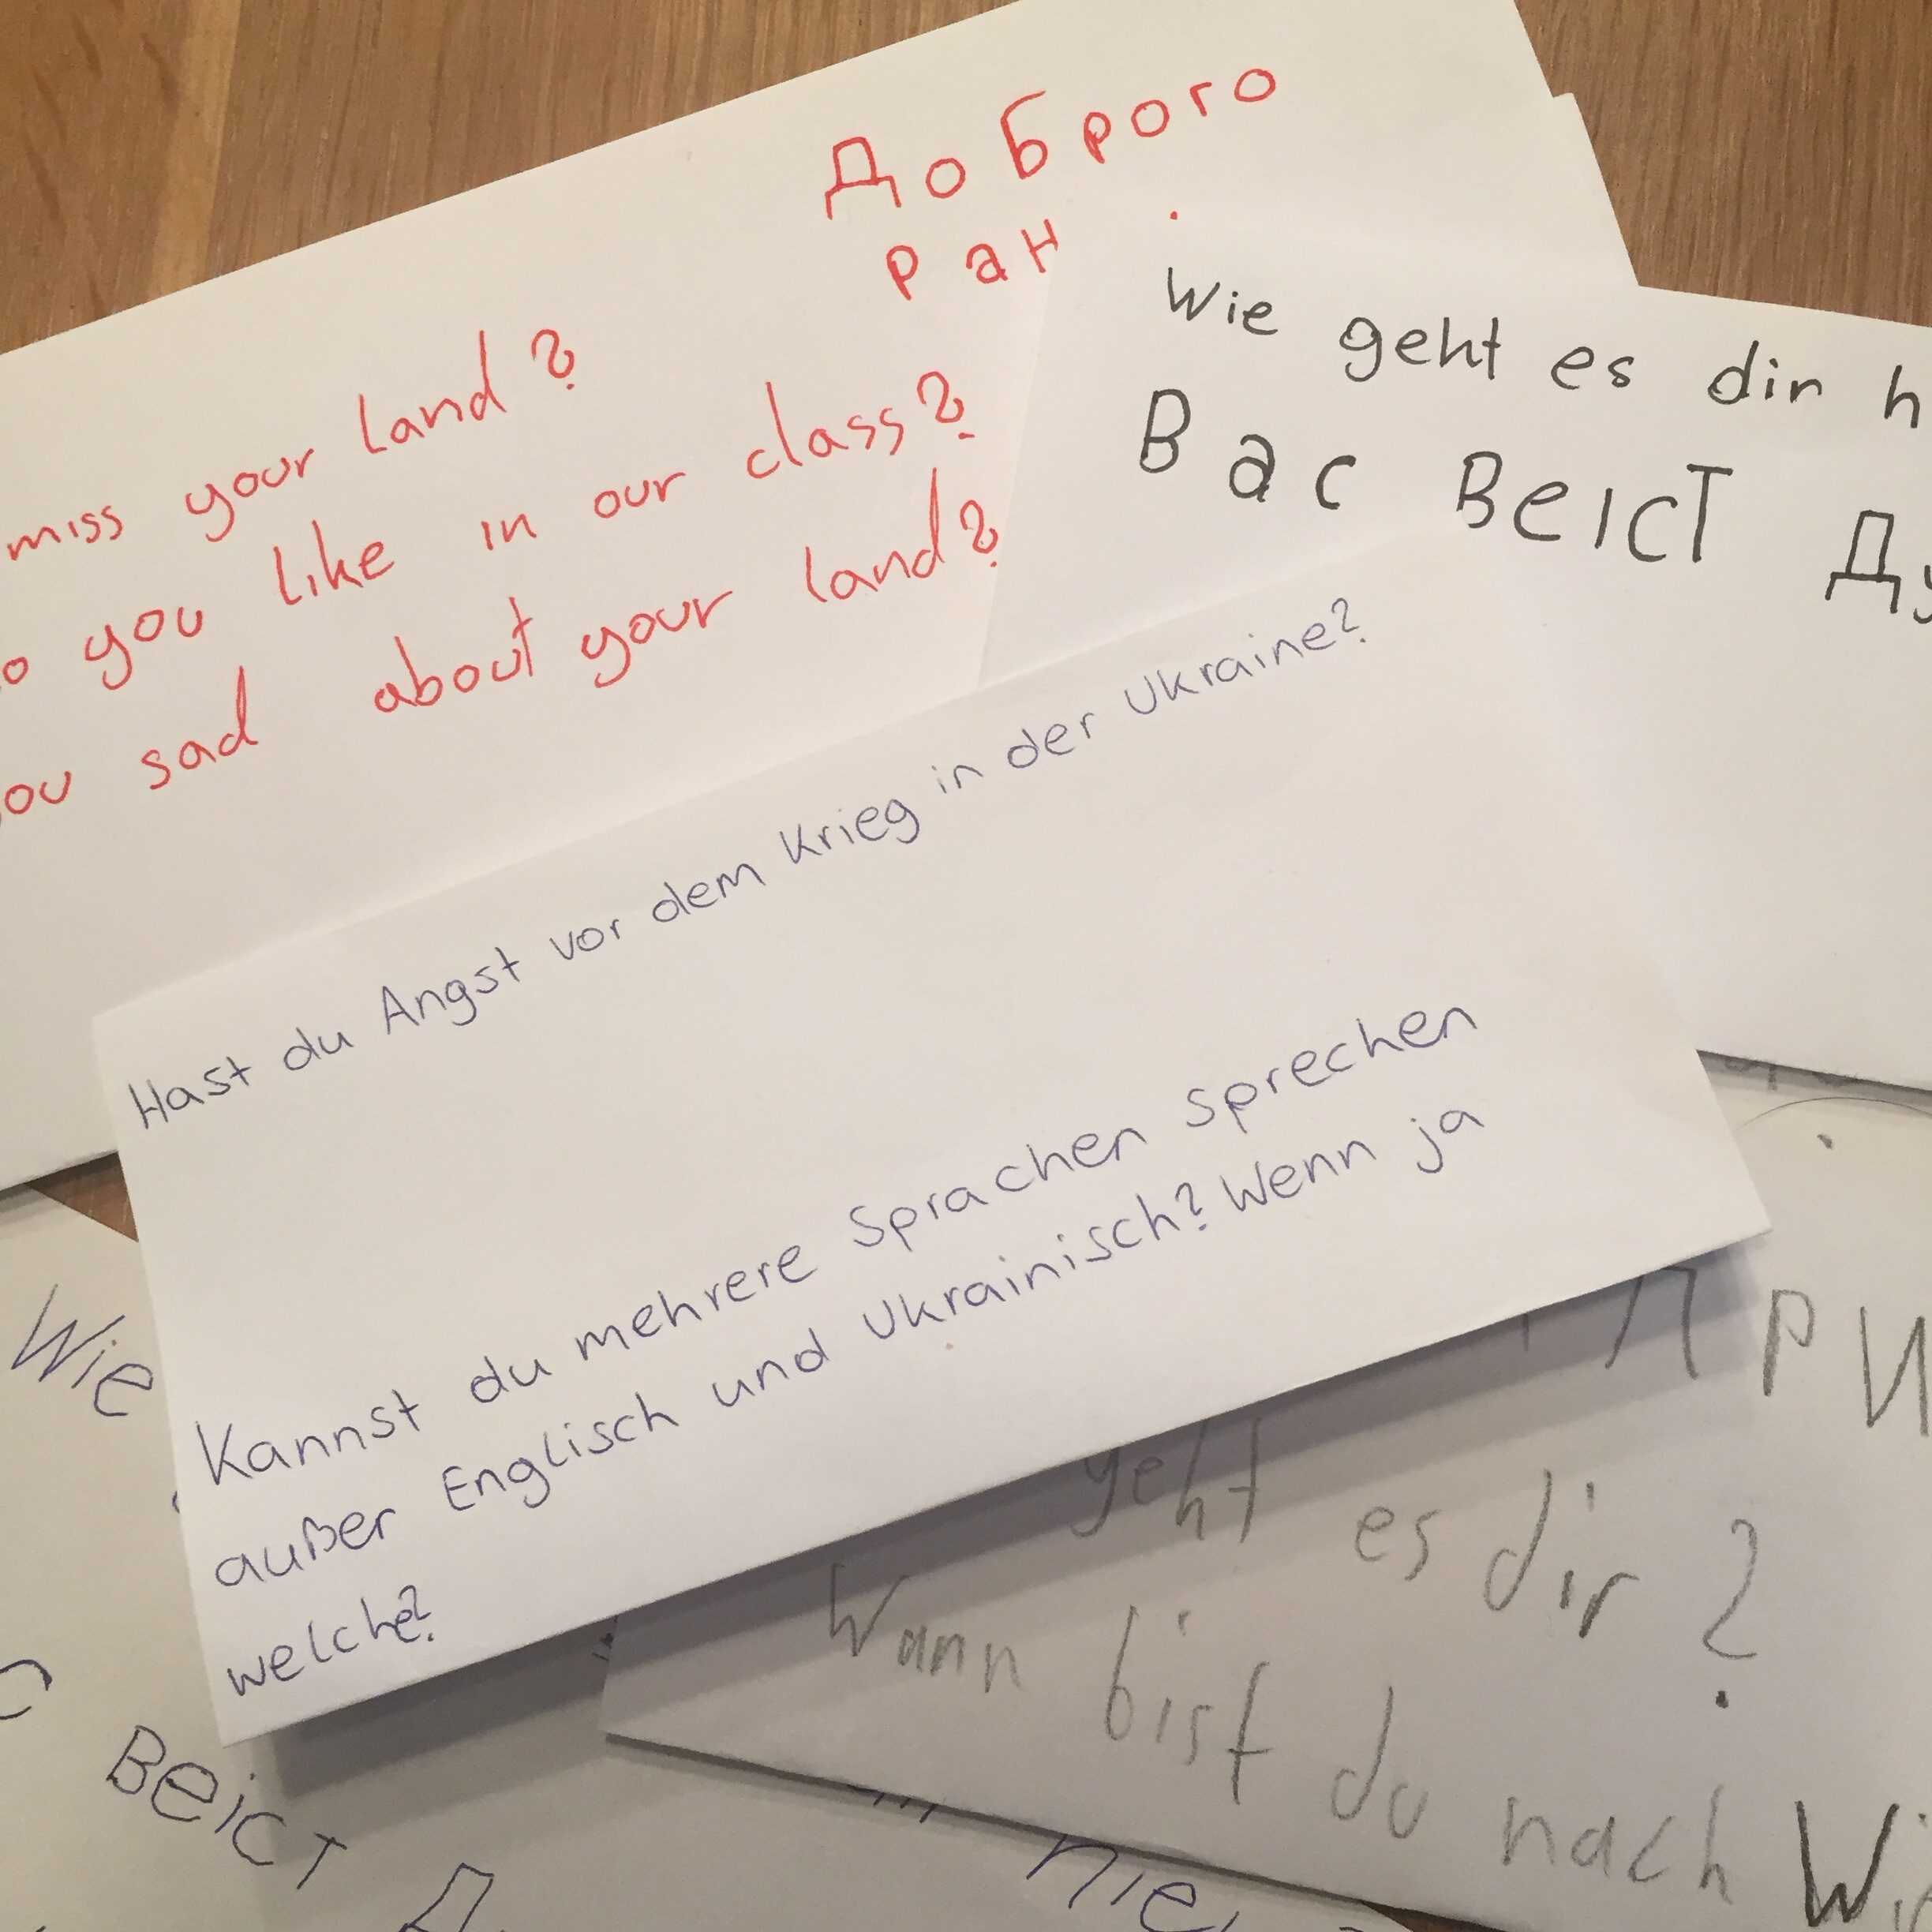 Доброго
ран
miss your land?
you like in our class?
sad about your land?
Wie geht es dir
Вас Веіст
Hast du Angst vor dem Krieg in der Ukraine?
Kannst du mehrere Sprachen sprechen
außer Englisch und Ukrainisch? Wenn ja
welche?
Wie
Веіст
geht es dir?
Wann bist du nach